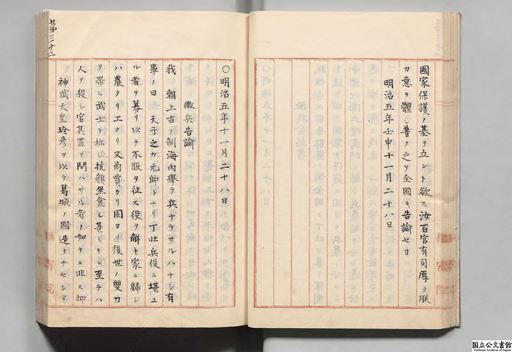 國家保護ノ基ヲ立ント欲ス汝百官有司厚ク朕
カ意ヲ體シ普ク之ヲ全國ニ告諭セヨ
明治五年壬申十一月二十八日
〇明治五年十一月二十八日
徴兵告諭
我 朝上古ノ制海内擧テ兵ナラサルハナシ有
事ノ日 天子之カ元帥トナリ丁壯兵役ニ堪ユ
ル者ヲ募リ以テ不服ヲ征ス役ヲ解キ家ニ歸レ
ハ農タリ工タリ又商賈タリ固ヨリ後世ノ雙刀
ヲ帶ヒ武士ト稱シ抗顔坐食シ甚シキニ至テハ
人ヲ殺シ官其罪ヲ問ハサル者ノ如キニ非ス抑
神武天皇珍彦ヲ以テ葛城ノ國造トナセシヨ
国立公文書館
National Archives of Japan